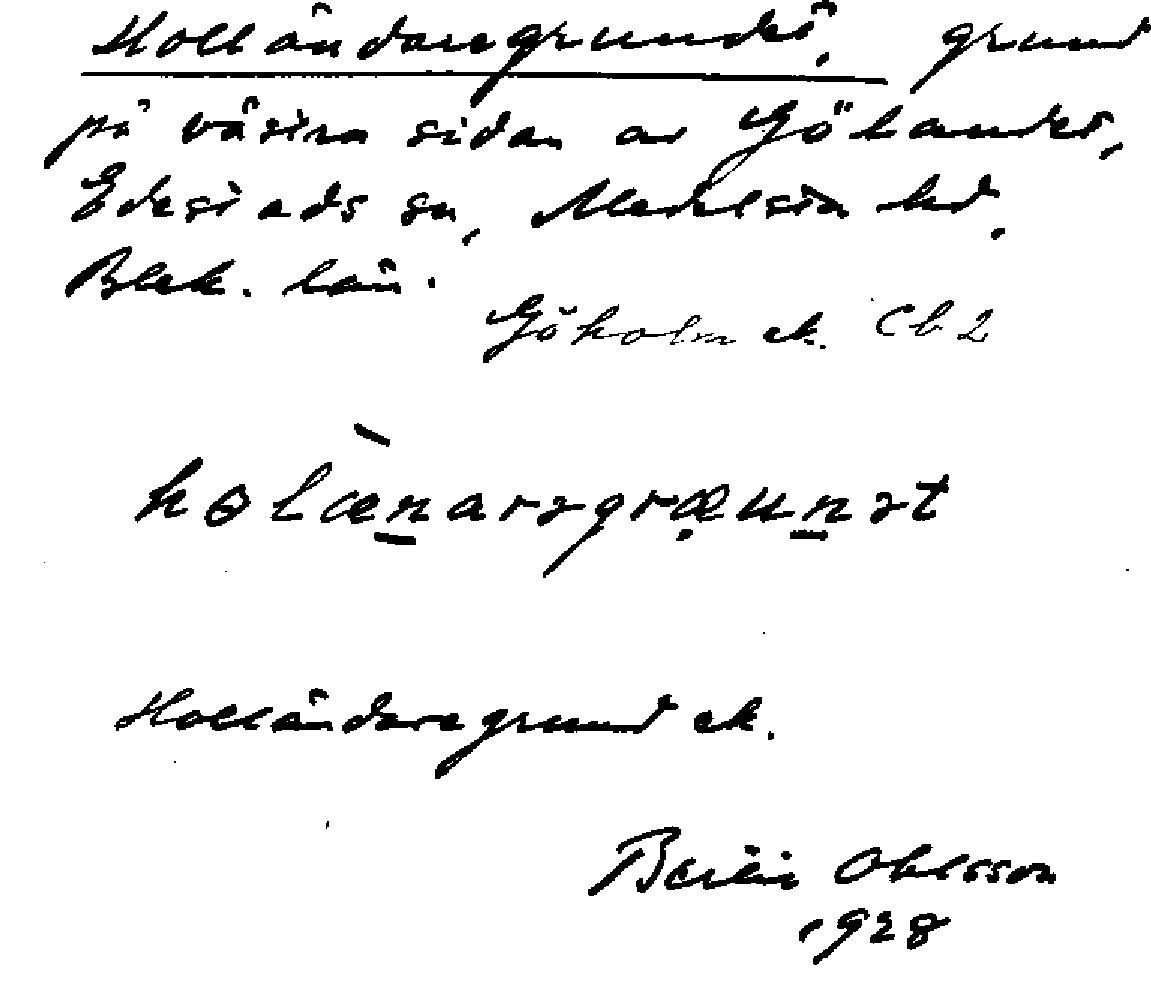 Holländaregrundet, grund
på västra sidan av Gölandet,
Edestads sn, Medelsta hd,
Blek. län.
Göholm ek. Cb2
holænarəgræunət
Holländaregrund ek.
Bertil Ohlsson
1928